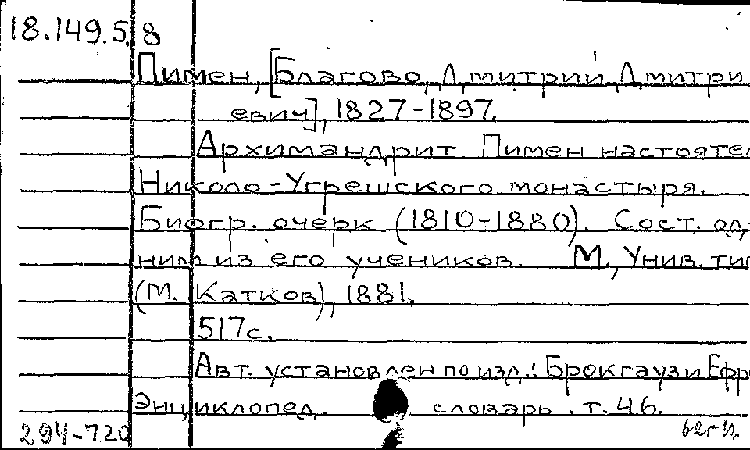 18.149.5.8
Пимен, [Благово, Дмитрий Дмитри
евич], 1827-1897.
Архимандрит Пимен настояте
Николо-Угрешского монастыря.
Биогр. очерк (1810-1880). Сост. од
ним из его учеников. М., Унив. ти
(М. Катков), 1881.
517с.
Авт. установлен по изд.: Брокгауз и Ефр
Энциклопед. словарь. т. 46.
294-720